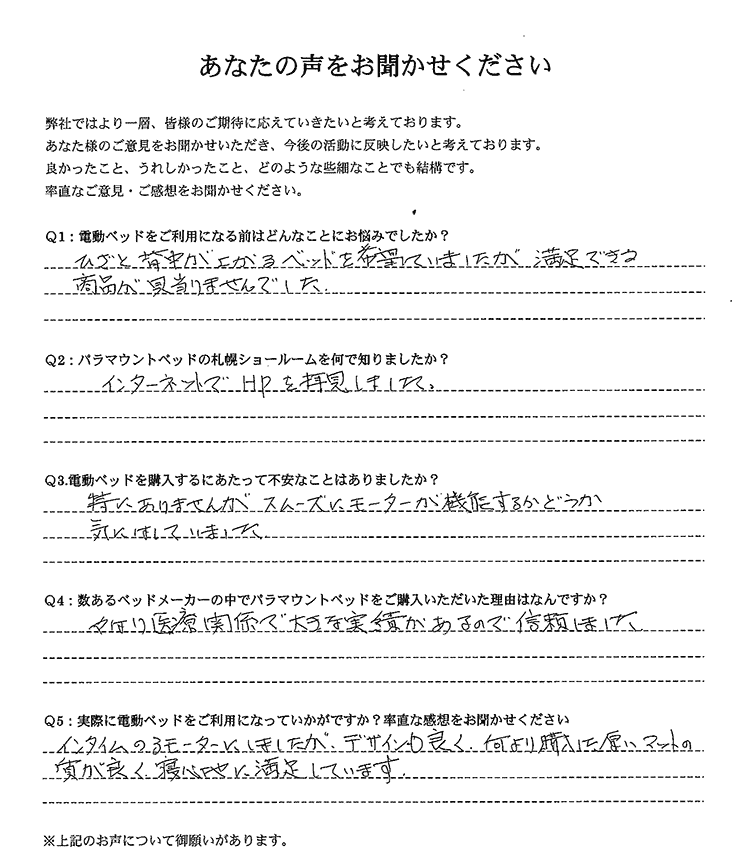 あなたの声をお聞かせください
弊社ではより一層、皆様のご期待に応えていきたいと考えております。
あなた様のご意見をお聞かせいただき、今後の活動に反映したいと考えております。
良かったこと、うれしかったこと、どのような些細なことでも結構です。
率直なご意見・ご感想をお聞かせください。
Q1：電動ベッドをご利用になる前はどんなことにお悩みでしたか？
ひざと背中が上がるベッドを希望していましたが 満足できる
商品が見当りませんでした.
Q2：パラマウントベッドの札幌ショールームを何で知りましたか？
インターネットで HPを拝見しました。
Q3.電動ベッドを購入するにあたって不安なことはありましたか？
特にありませんが スムーズにモーターが機能するかどうか
気にはしていました
Q4：数あるベッドメーカーの中でパラマウントベッドをご購入いただいた理由はなんですか？
やはり医療関係で大きな実績があるので信頼しました
Q5：実際に電動ベッドをご利用になっていかがですか？率直な感想をお聞かせください
インタイムの3モーターにしましたが、デザインも良く、何より購入した厚いマットの
質が良く寝心地に満足しています.
※上記のお声について御願いがあります。